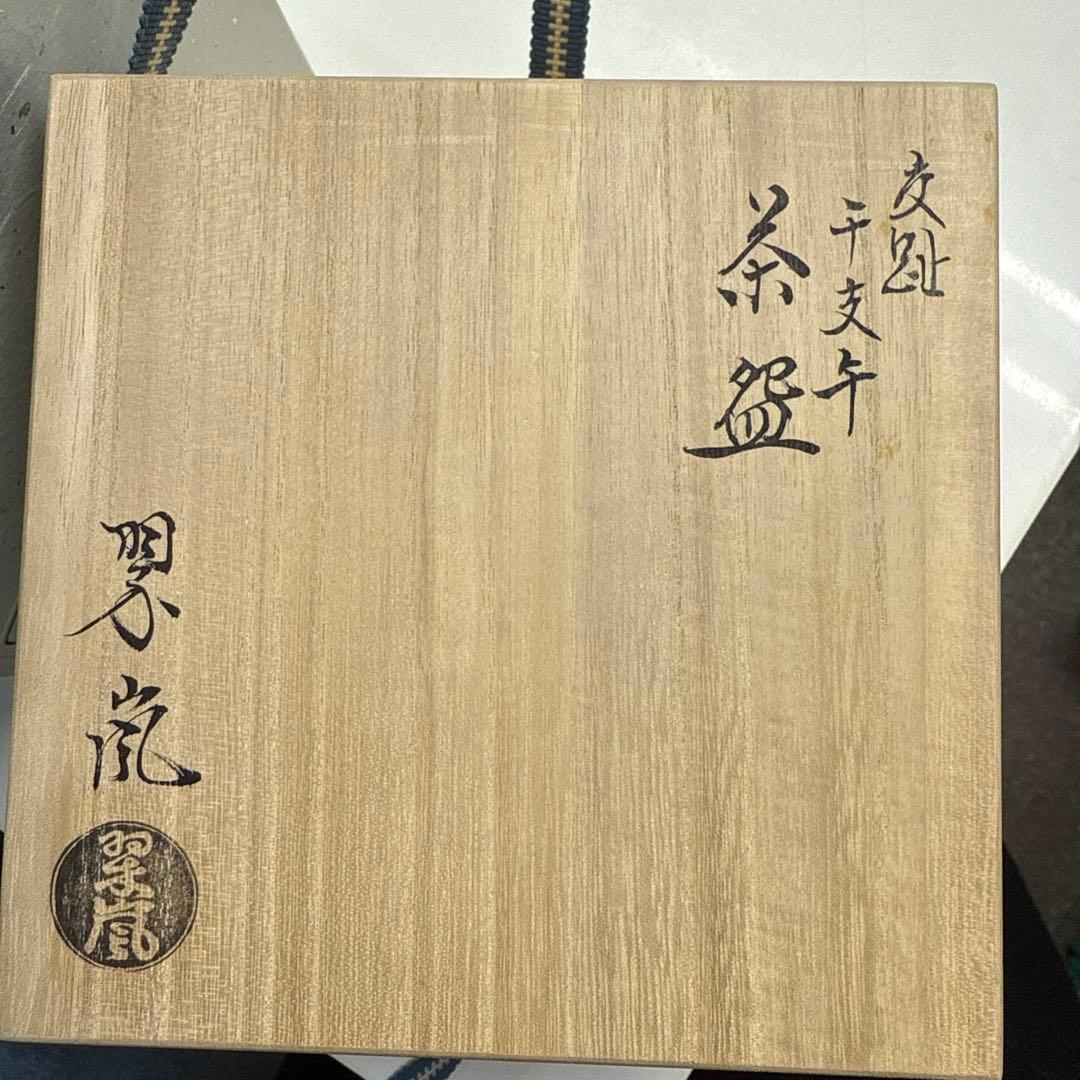 交趾
干支午
茶盌
翠嵐
翠嵐